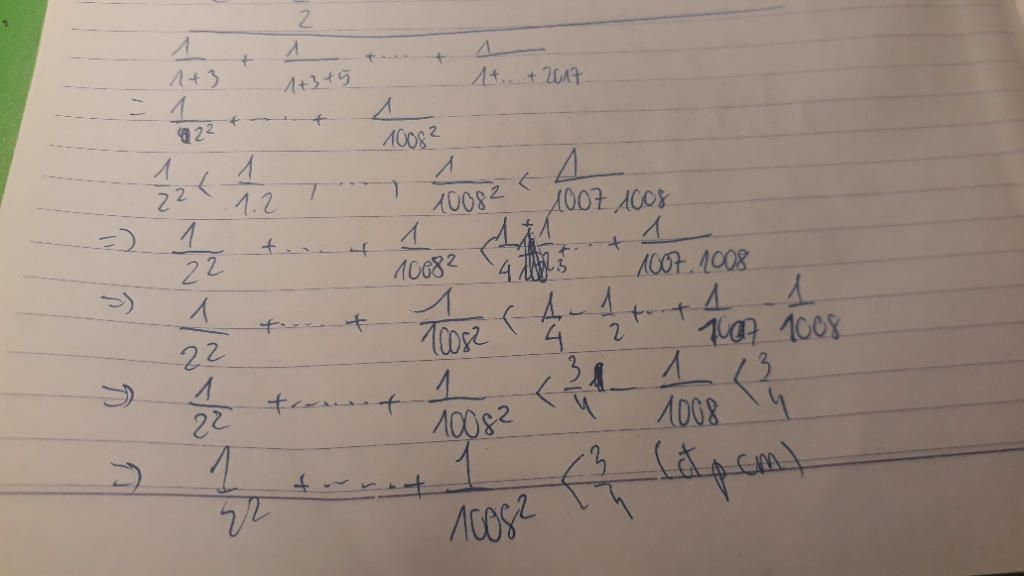 2
1/(1+3) + 1/(1+3+5) + .... + 1/(1+...+2017)
= 1/2² + ..... + 1/1008²
1/2² < 1/1.2 , ...., 1/1008² < 1/1007.1008
=> 1/2² + ..... + 1/1008² < 1/4 + 1/2.3 + ... + 1/1007.1008
=> 1/2² + ..... + 1/1008² < 1/4 - 1/2 + ... + 1/1007 - 1/1008
=> 1/2² + ........ + 1/1008² < 3/4 - 1/1008 < 3/4
=> 1/2² + ...... + 1/1008² < 3/4 (đpcm)